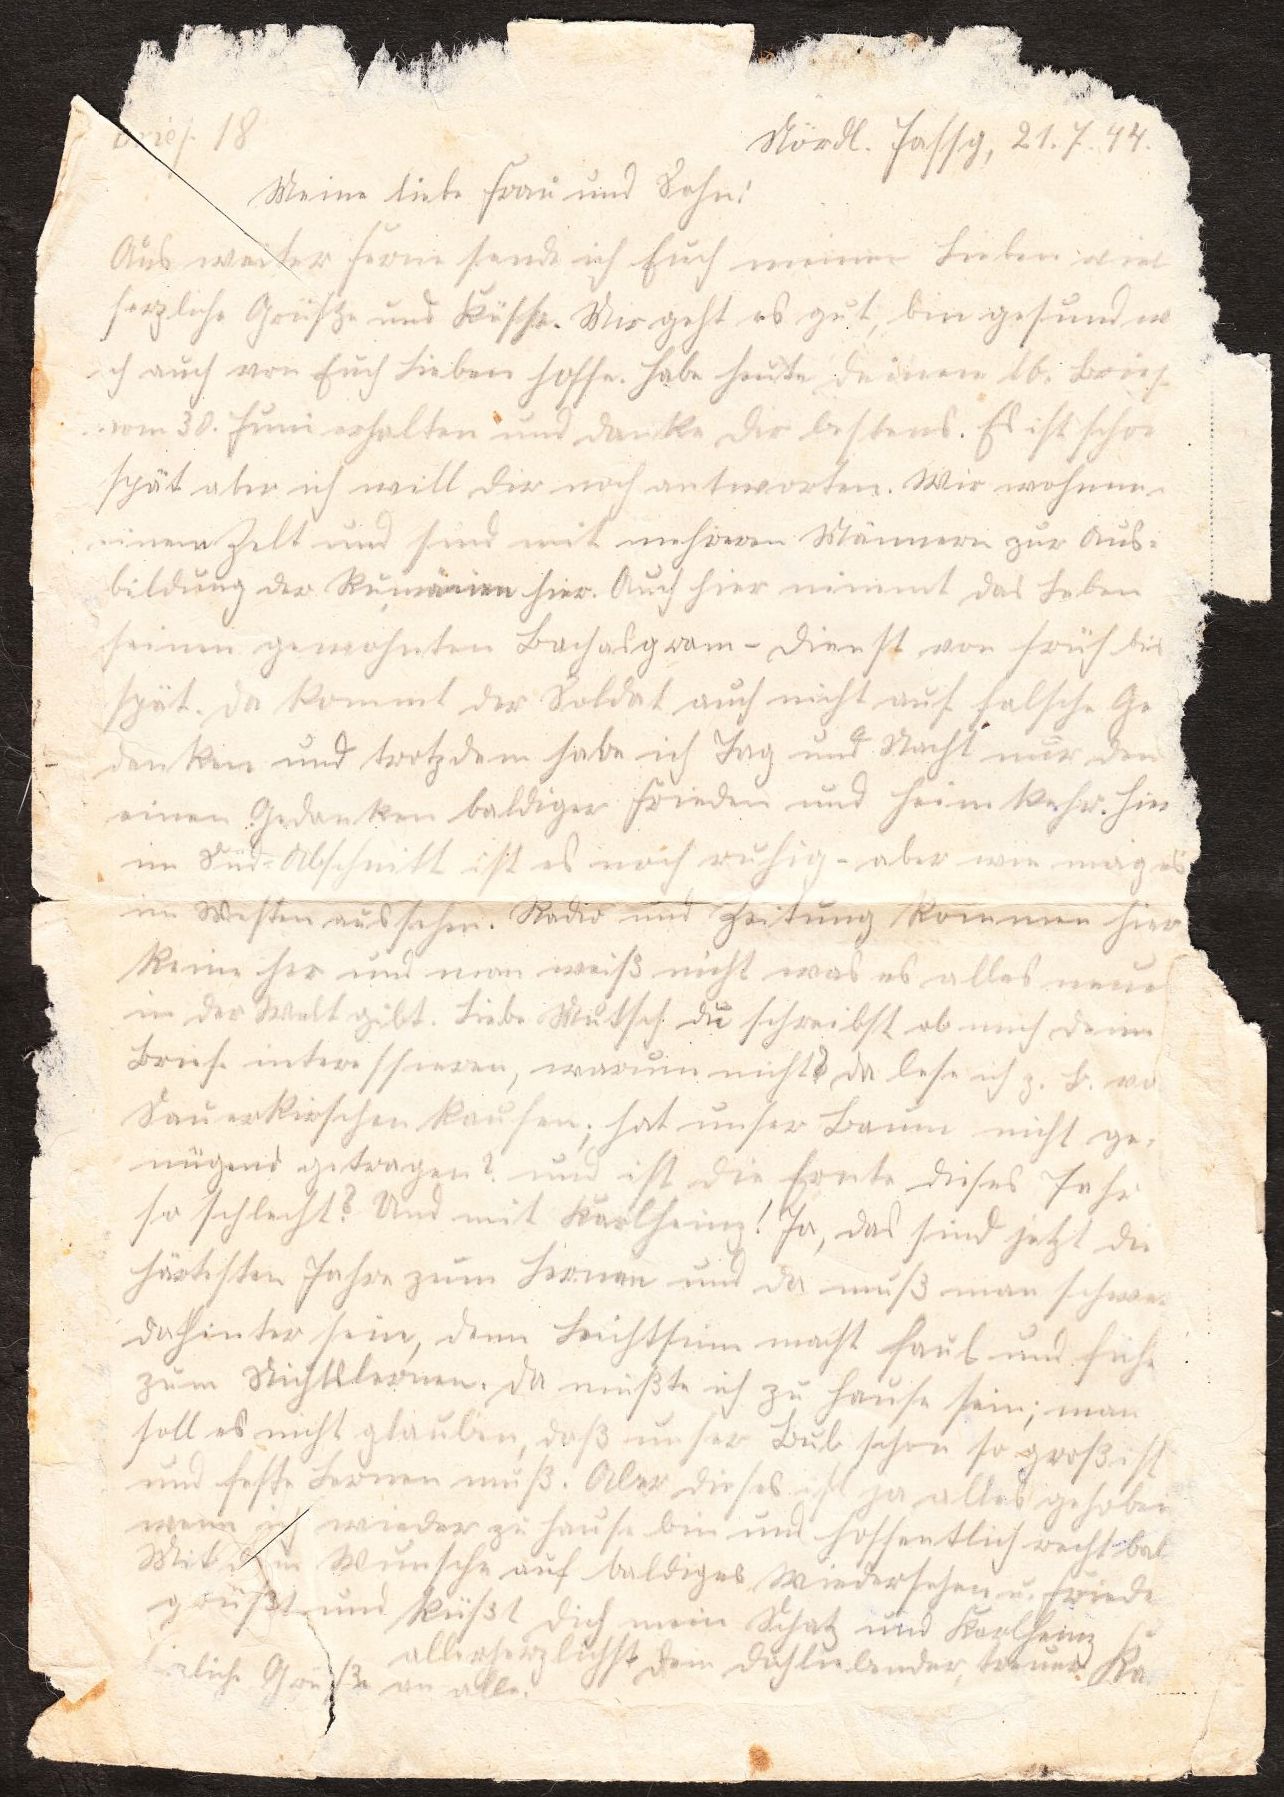 Brief 18
Nördl. Jassy, 21.7.44.
Meine liebe Frau und Sohn!
Aus weiter Ferne sende ich Euch meinen Lieben viel
herzliche Grüße und Küsse. Mir geht es gut, bin gesund w
ch auch von Euch Lieben hoffe. Habe heute Deinen lb. Brief
vom 30. Juni erhalten und danke Dir bestens. Es ist schon
spät aber ich will Dir noch antworten. Wir wohnen
einem Zelt und sind mit mehreren Männern zur Aus-
bildung der Rumänien hier. Auch hier nimmt das Leben
seinen gewohnten - Dienst von früh bis
spät. Da kommt der Soldat auch nicht auf falsche Ge
danken und trotzdem habe ich Tag und Nacht nur den
einen Gedanken baldiger Frieden und Heimkehr. Hier
im Süd-Abschnitt ist es noch ruhig - aber wie mag es
im Westen aussehen. Radio und Zeitung kommen hier
keine her und man weiß nicht was es alles neues
in der Welt gibt. Liebe Mutsch Du schreibst ob mich Deine
Briefe interessieren, warum nicht? Da lese ich z. B. vo
Sauerkirschen kaufen; hat unser Baum nicht ge-
nügend getragen? und ist die Ernte dieses Jahr
so schlecht? Und mit Karlheinz! Ja, das sind jetzt die
härtesten Jahre zum Lernen und da muß man schwe
dahinter sein, denn Leichtsinn macht faul und führ
zum Nichtslernen. Da müßte ich zu Hause sein; man
soll es nicht glauben, daß unser Bub schon so groß ist
und feste Lernen muß. Aber dieses ist ja alles gehoben
wenn ich wieder zu Hause bin und hoffentlich recht bal
Mit dem Wunsche auf baldiges Wiedersehen u. Friede
grüßt und küßt Dich mein Schatz und Karlheinz
allerherzlichst Dein Dichliebender, treuer Ka
zliche Grüße an alle.